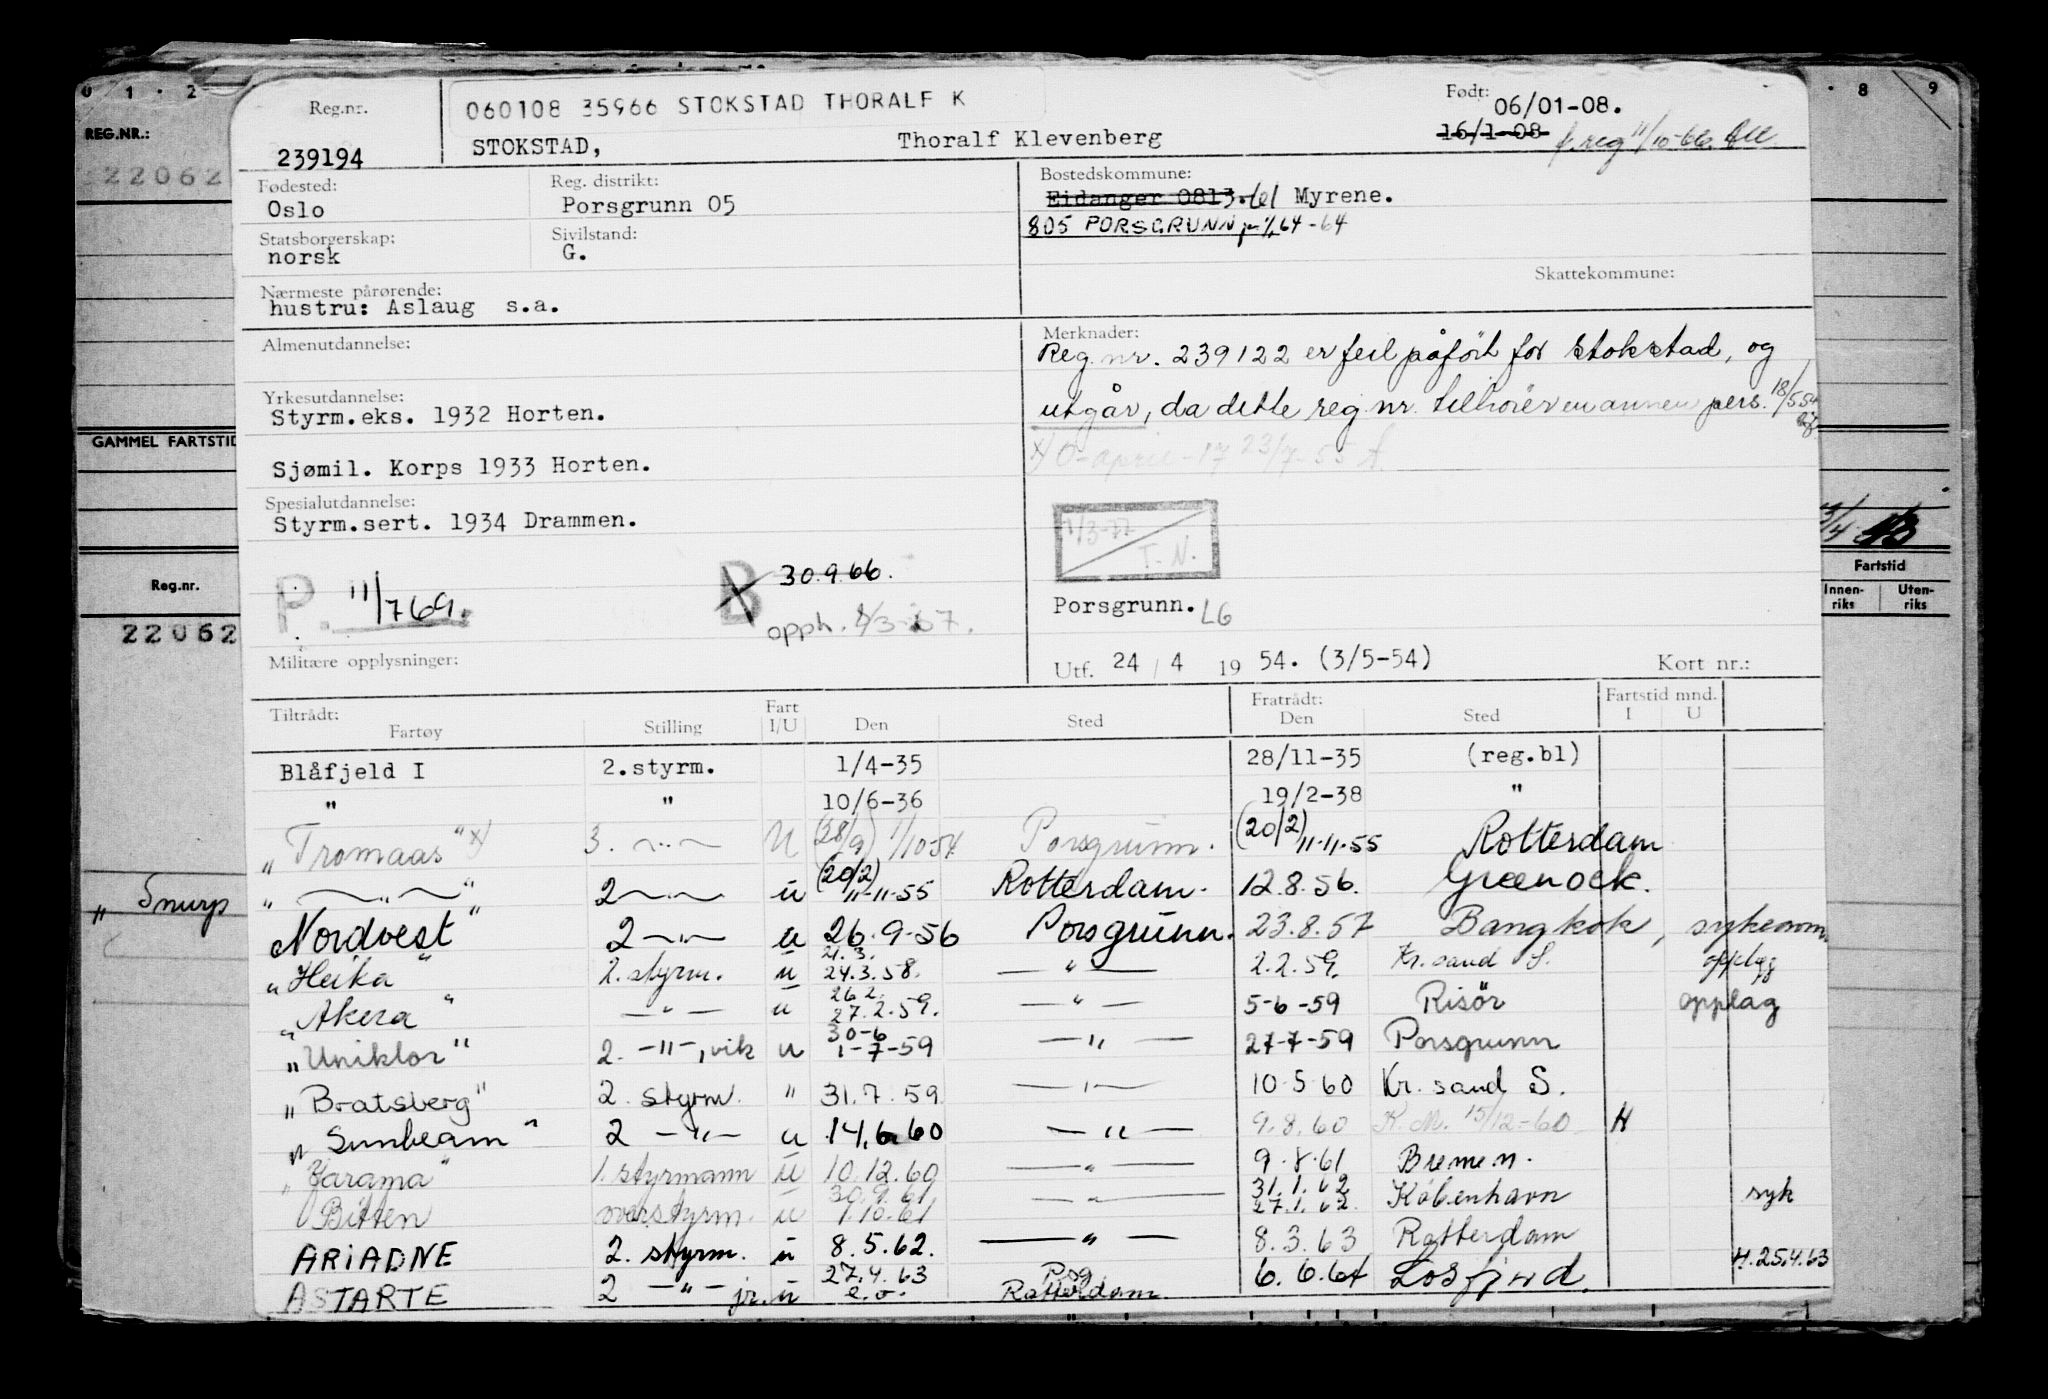 0 1 · 2
· 8 9
REG.NR.:
22062
GAMMEL FARTSTID
Reg.nr.
22062
Fartstid
Innen-riks Uten-riks
„ Snurp
Reg.nr.
239194
060108 35966 STOKSTAD THORALF K
STOKSTAD, Thoralf Klevenberg
Født: 06/01-08.
16/1-08
Fødested:
Oslo
Reg. distrikt:
Porsgrunn 05
Bostedskommune:
Eidanger 0813 Myrene.
805 PORSGRUNN -64
Statsborgerskap:
norsk
Sivilstand:
G.
Skattekommune:
Nærmeste pårørende:
hustru: Aslaug s.a.
Almenutdannelse:
Merknader:
Reg. nr. 239122 er feil påført for Stokstad, og
utgår, da dette reg. nr. tilhører en annen pers. 18/5 54
x) O-april-17 23/7-55
Yrkesutdannelse:
Styrm.eks. 1932 Horten.
Sjømil. Korps 1933 Horten.
Spesialutdannelse:
Styrm.sert. 1934 Drammen.
T. N.
P. 11/7 69.
B 30.9.66.
opph.
Porsgrunn. LG
Militære opplysninger:
Utf. 24 / 4 19 54. (3/5-54) Kort nr.:
Tiltrådt:
Fartøy Stilling Fart I/U Den Sted
Fratrådt:
Den Sted Fartstid mnd. I U
Blåfjeld I 2.styrm. 1/4-35 28/11-35 (reg.bl)
" " 10/6-36 19/2-38 "
„Tromaas" x) 3. —"— U (28/9) 1/10 54 Porsgrunn. (20/2) 11-11-55 Rotterdam
„ —„— " 2 —"— u (20/2) 11-11-55 Rotterdam. 12.8.56. Greenock.
Nordvest" 2 —"— u 26.9-56 Porsgrunn. 23.8.57 Bangkok, sykeomm
„Heika" 2. styrm. u 21.3. 24.3.58. —"— 2.2.59. Kr.sand S. opplag
„Akera" —"— u 26.2. 27.2.59. —"— 5-6-59 Risör opplag
„Uniklor" 2. —"—, vik u 30-6 1-7-59 —"— 27-7-59 Porsgrunn
„Bratsberg" 2. styrm. " 31.7.59. —"— 10.5.60 Kr. sand S.
„Sunbeam" 2 —"— u 14.6.60 —"— 9.8.60 K.M. 15/12-60 H
„Jarama" 1. styrmann u 10.12.60 —"— 9.8.61 Bremen.
Bitten overstyrm. u 30.9.61 1.10.61 —"— 31.1.62 27.1.62. København syk
ARIADNE 2. styrm. u 8.5.62. —"— 8.3.63 Rotterdam
ASTARTE 2 —"— jr. u 27.4.63 e.o. Psg Rotterdam. 6.6.64 Losfjord. H.25.4.63